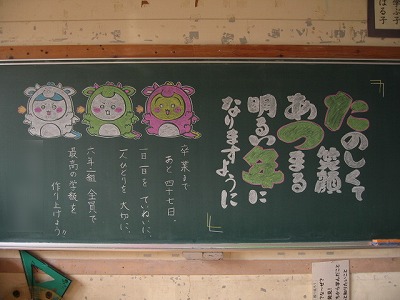 学ぶ子
ばる子
たのしくて
笑顔
あつまる
明るい年に
なりますように
卒業まで
あと四十七日、
一日一日をていねいに、
一人ひとりを大切に、
六年一組 全員で
最高の学級を
作り上げよう!!